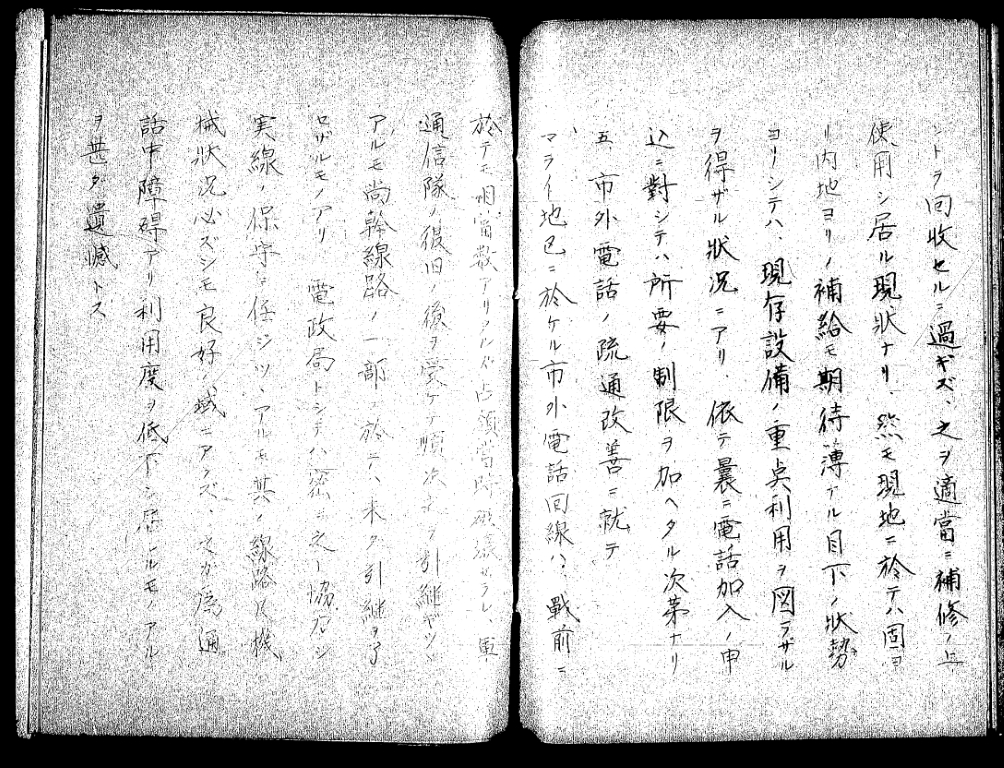 シトヲ回收セルニ過ギズ、之ヲ適當ニ補修ノ上
使用シ居ル現狀ナリ、然モ現地ニ於テハ固ヨ
リ内地ヨリノ補給モ期待薄ナル目下ノ狀勢
ヨリシテハ、現存設備ノ重点利用ヲ図ラザル
ヲ得ザル狀況ニアリ、依テ曩ニ電話加入ノ申
込ニ對シテハ所要ノ制限ヲ加ヘタル次第ナリ
五、市外電話ノ疏通改善ニ就テ
マライ地區ニ於ケル市外電話回線ハ、戰前ニ
於テモ相當數アリタルガ占領當時破壞セラレ、軍
通信隊ノ復旧ノ後ヲ受ケテ順次之ヲ引継ギツヽ
アルモ尚幹線路ノ一部ニ於テハ未ダ引継ヲ了
ロザルモノアリ 電政局トシテハ密ニ之ト協力シ
実線ノ保守ニ任ジツヽアルモ其ノ線路及機
械狀況必ズシモ良好ノ域ニアラズ、之ガ為通
話中障碍アリ利用度ヲ低下シ居ルモノアル
ヲ甚ダ遺憾トス